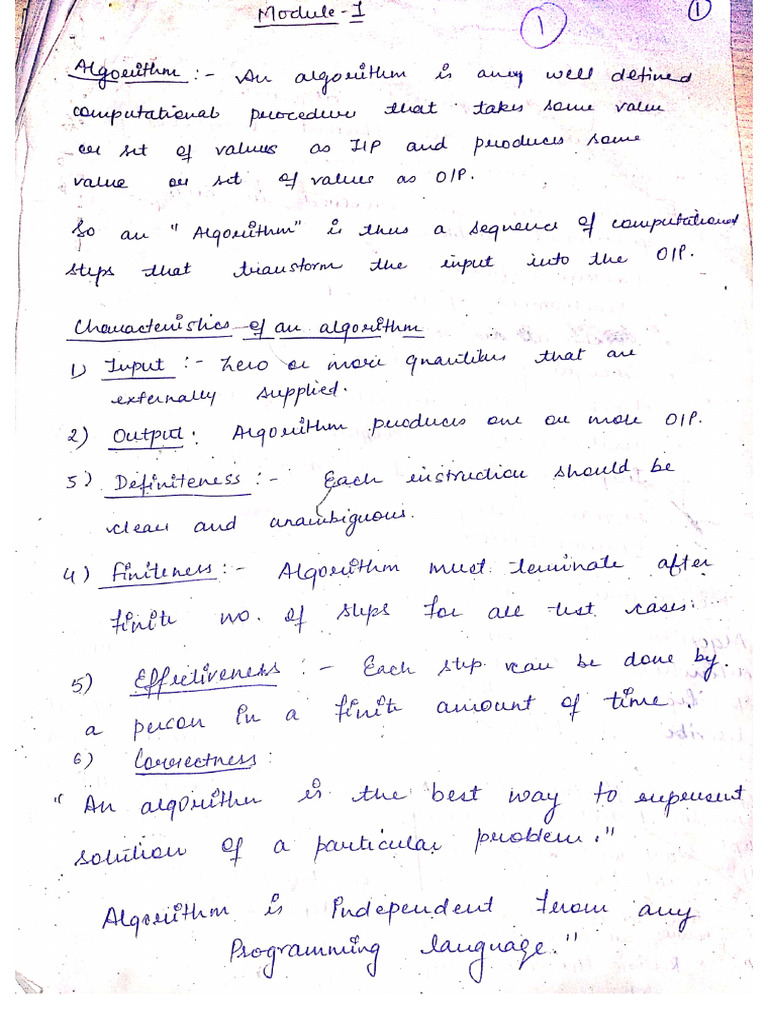 Module-1
1
1
Algorithm :- An algorithm is any well defined
computational procedure that takes some value
or set of values as I/P and produces some
value or set of values as O/P.
So an "Algorithm" is thus a sequence of computational
steps that transform the input into the O/P.
Characteristics of an algorithm
1) Input :- Zero or more quantities that are
externally supplied.
2) Output: Algorithm produces one or more O/P.
3) Definiteness :- Each instruction should be
clear and unambiguous.
4) Finiteness :- Algorithm must terminate after
finite no. of steps for all test cases.
5) Effectiveness :- Each step can be done by
a person in a finite amount of time.
6) Correctness:
"An algorithm is the best way to represent
solution of a particular problem."
Algorithm is Independent from any
Programming language."